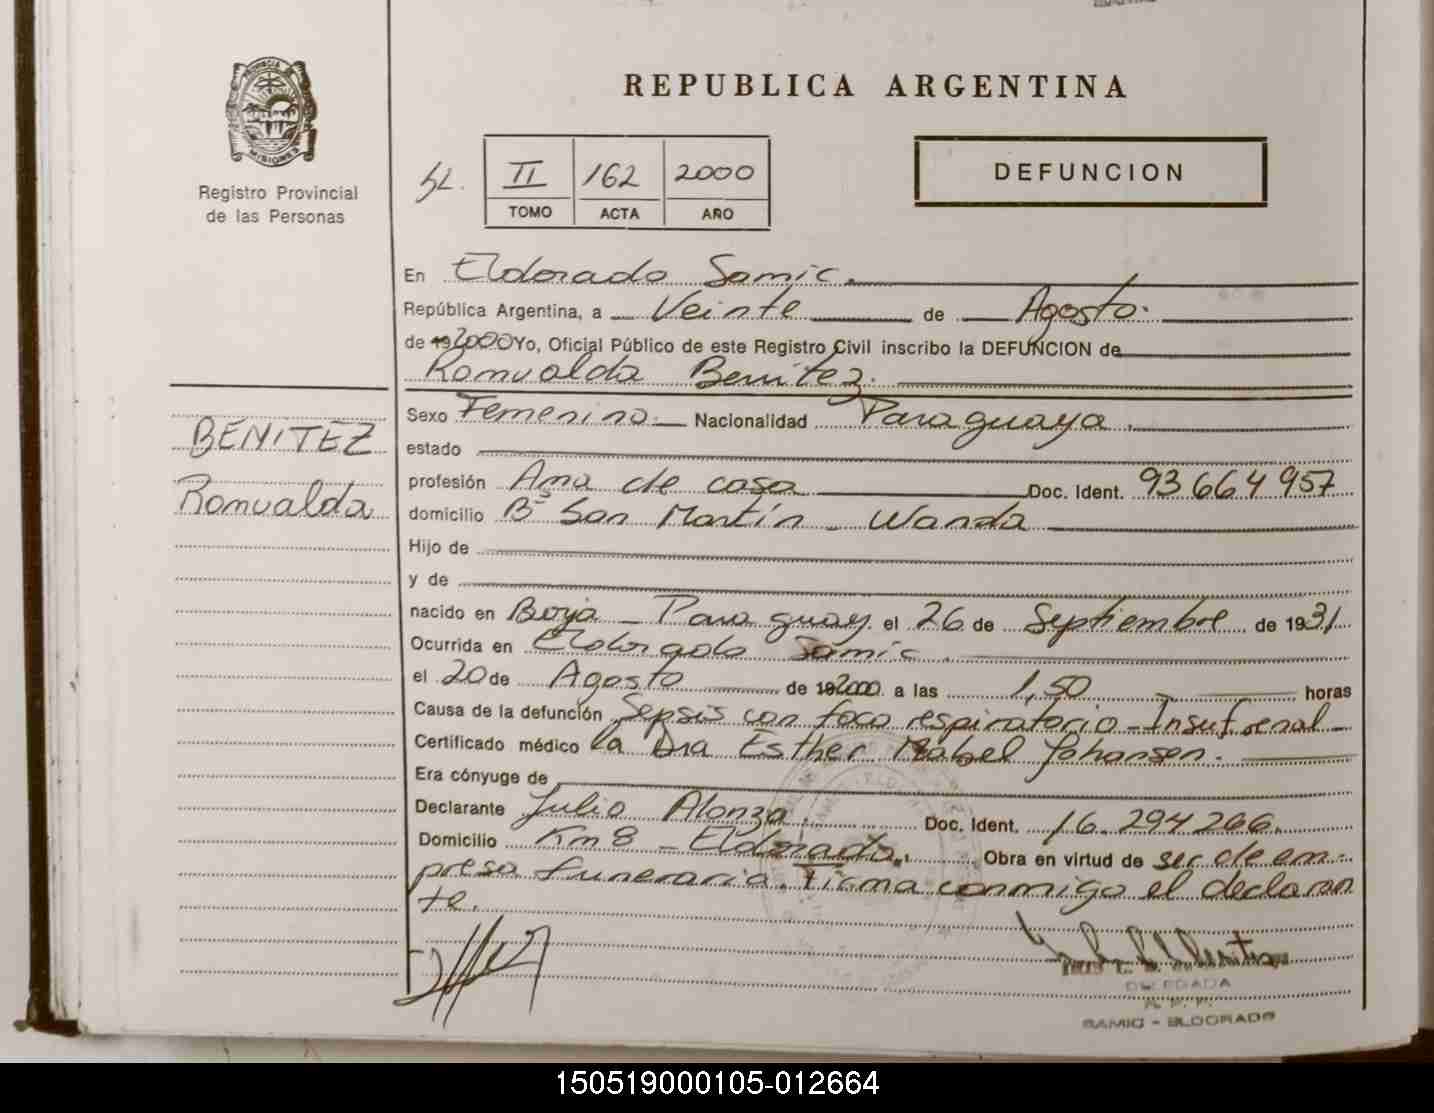 PROVINCIA DE
MISIONES
Registro Provincial
de las Personas
REPUBLICA ARGENTINA
II 162 2000
TOMO ACTA AÑO
DEFUNCION
En Eldorado Samic.
República Argentina, a Veinte de Agosto.
de 192000 Yo, Oficial Público de este Registro Civil inscribo la DEFUNCION de
Romualda Benitez.
BENITEZ
Romualda
Sexo Femenino Nacionalidad Paraguaya.
estado
profesión Ama de casa Doc. Ident. 93 664 957
domicilio B° San Martín - Wanda
Hijo de
y de
nacido en Borja - Paraguay. el 26 de Septiembre de 1931
Ocurrida en Eldorado Samic.
el 20 de Agosto de 192000 a las 1,50 horas
Causa de la defunción Sepsis con foco respiratorio - Insuf. renal -
Certificado médico la Dra Esther Mabel Johansen.
Era cónyuge de
Declarante Julio Alonzo. Doc. Ident. 16.294 266.
Domicilio Km 8 - Eldorado. Obra en virtud de ser de em-
presa funeraria. Firma conmigo el declaran
te.
DELEGADA
R. P. P.
SAMIC - ELDORADO
150519000105-012664